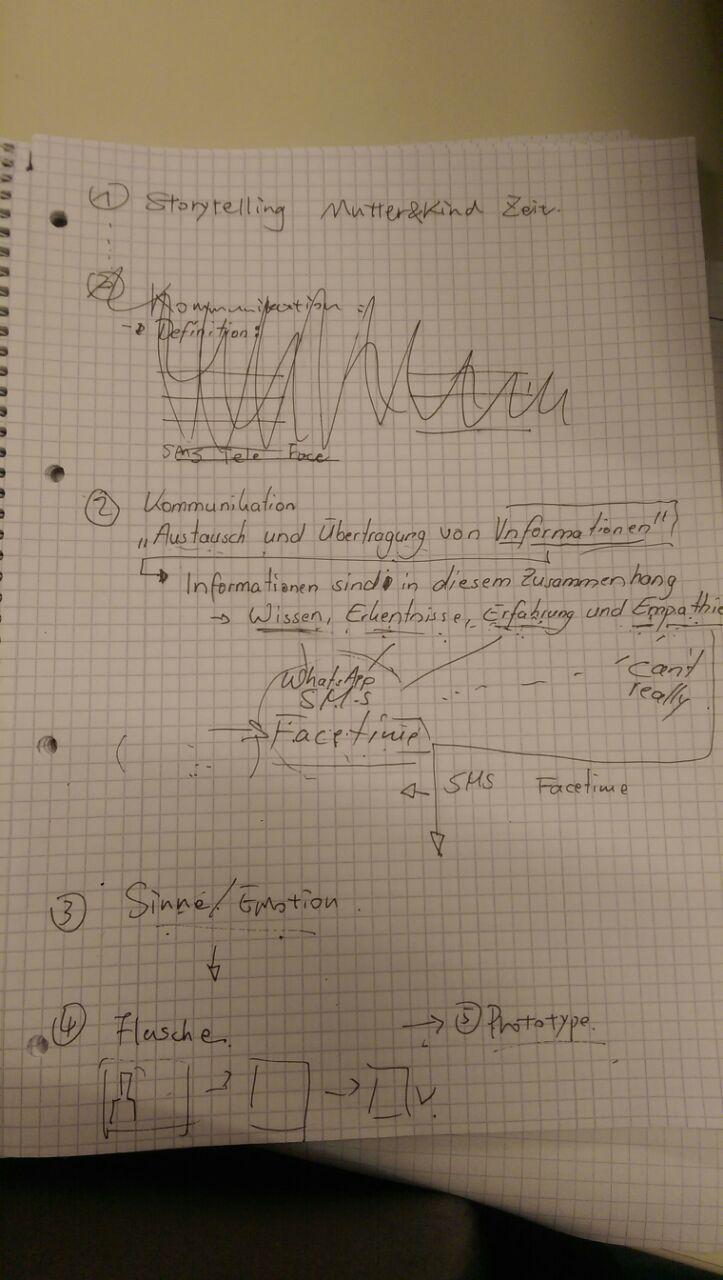 ① Storytelling Mutter&Kind Zeit.
② Kommunikation :
→ Definition:
SMS Tele Face
② Kommunikation
„Austausch und Übertragung von Informationen"
↳ Informationen sind in diesem Zusammenhang
→ Wissen, Erkentnisse, Erfahrung und Empathie
WhatsApp
SMS
"can't
really
Facetime
← SMS Facetime
③ Sinne/Emotion.
↓
④ Flasche. → ⑤ Prototype.